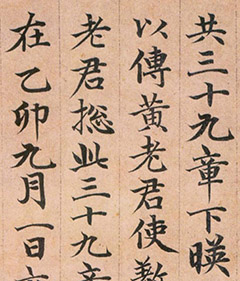 共三十九章下暎
以傳黄老君使
老君捴此三十九章
在乙卯九月一日